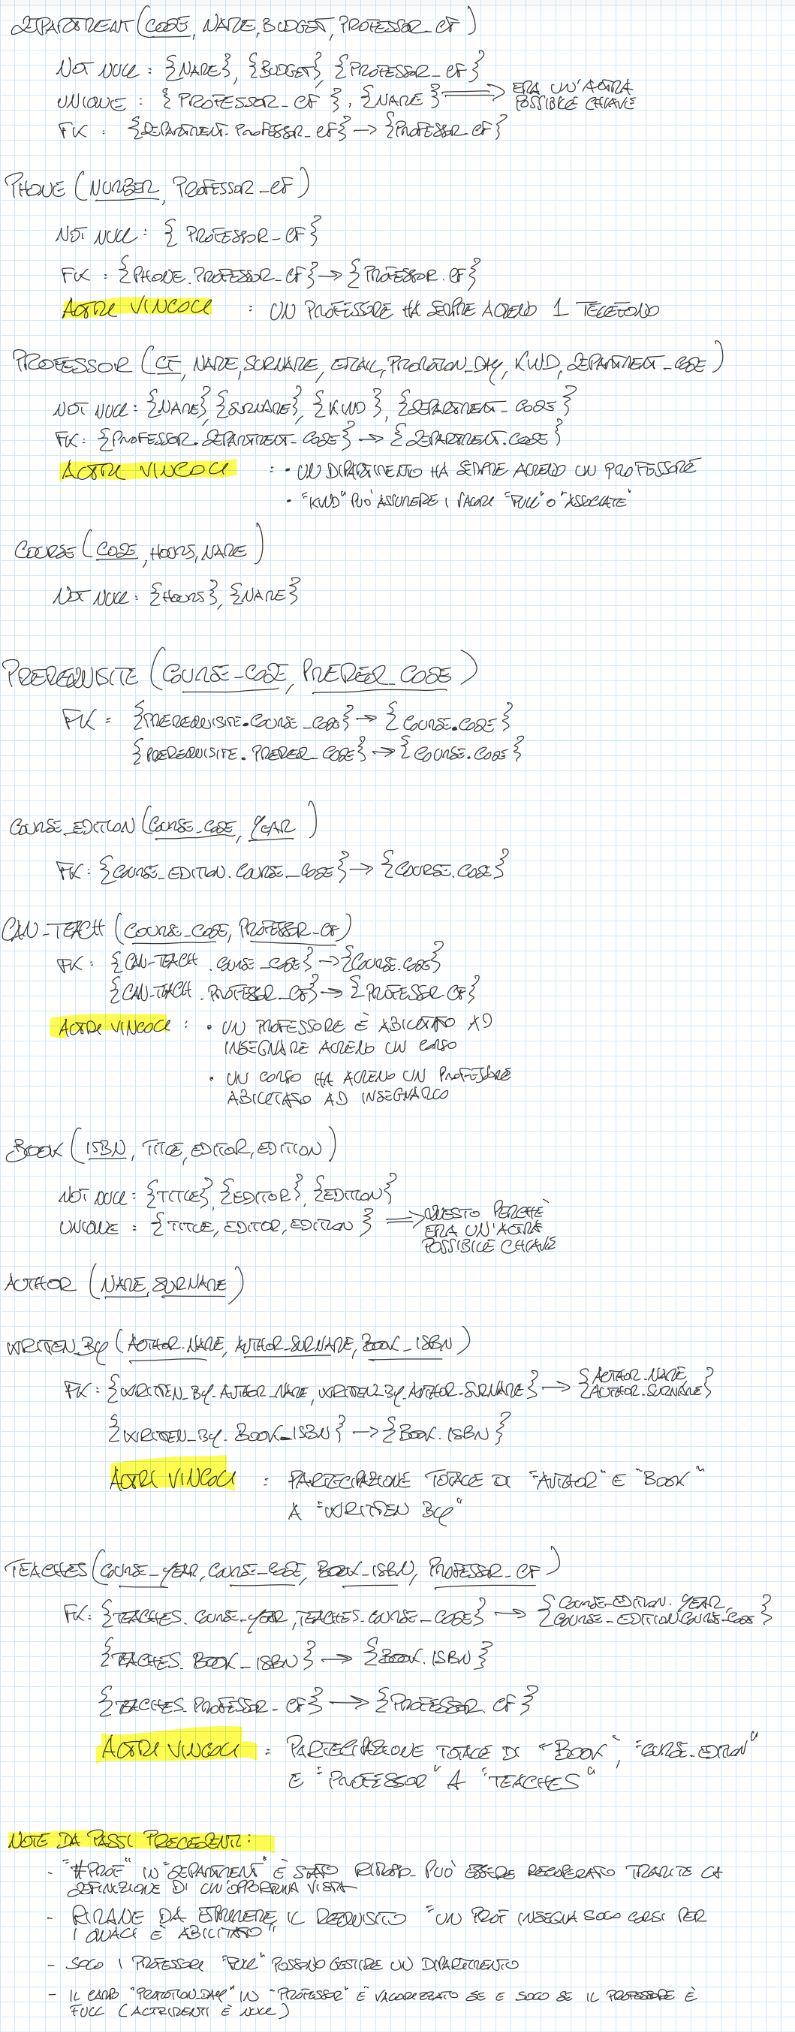 DEPARTMENT (CODE, NAME, BUDGET, PROFESSOR_CF)
NOT NULL : {NAME}, {BUDGET}, {PROFESSOR_CF}
UNIQUE : {PROFESSOR_CF}, {NAME} => ERA UN'ALTRA
POSSIBILE CHIAVE
FK : {DEPARTMENT.PROFESSOR_CF} -> {PROFESSOR.CF}
PHONE (NUMBER, PROFESSOR_CF)
NOT NULL : {PROFESSOR_CF}
FK : {PHONE.PROFESSOR_CF} -> {PROFESSOR.CF}
ALTRI VINCOLI : UN PROFESSORE HA SEMPRE ALMENO 1 TELEFONO
PROFESSOR (CF, NAME, SURNAME, EMAIL, PROMOTION_DAY, KIND, DEPARTMENT_CODE)
NOT NULL : {NAME}, {SURNAME}, {KIND}, {DEPARTMENT_CODE}
FK : {PROFESSOR.DEPARTMENT_CODE} -> {DEPARTMENT.CODE}
ALTRI VINCOLI : • UN DIPARTIMENTO HA SEMPRE ALMENO UN PROFESSORE
• "KIND" PUÒ ASSUMERE I VALORI "FULL" O "ASSOCIATE"
COURSE (CODE, HOURS, NAME)
NOT NULL : {HOURS}, {NAME}
PREREQUISITE (COURSE_CODE, PREREQ_CODE)
FK : {PREREQUISITE.COURSE_CODE} -> {COURSE.CODE}
{PREREQUISITE.PREREQ_CODE} -> {COURSE.CODE}
COURSE_EDITION (COURSE_CODE, YEAR)
FK : {COURSE_EDITION.COURSE_CODE} -> {COURSE.CODE}
CAN_TEACH (COURSE_CODE, PROFESSOR_CF)
FK : {CAN_TEACH.COURSE_CODE} -> {COURSE.CODE}
{CAN_TEACH.PROFESSOR_CF} -> {PROFESSOR.CF}
ALTRI VINCOLI : • UN PROFESSORE È ABILITATO AD
INSEGNARE ALMENO UN CORSO
• UN CORSO HA ALMENO UN PROFESSORE
ABILITATO AD INSEGNARLO
BOOK (ISBN, TITLE, EDITOR, EDITION)
NOT NULL : {TITLE}, {EDITOR}, {EDITION}
UNIQUE : {TITLE, EDITOR, EDITION} => QUESTO PERCHÈ
ERA UN'ALTRA
POSSIBILE CHIAVE
AUTHOR (NAME, SURNAME)
WRITTEN_BY (AUTHOR_NAME, AUTHOR_SURNAME, BOOK_ISBN)
FK : {WRITTEN_BY.AUTHOR_NAME, WRITTEN_BY.AUTHOR_SURNAME} -> {AUTHOR.NAME,
AUTHOR.SURNAME}
{WRITTEN_BY.BOOK_ISBN} -> {BOOK.ISBN}
ALTRI VINCOLI : PARTECIPAZIONE TOTALE DI "AUTHOR" E "BOOK"
A "WRITTEN BY"
TEACHES (COURSE_YEAR, COURSE_CODE, BOOK_ISBN, PROFESSOR_CF)
FK : {TEACHES.COURSE_YEAR, TEACHES.COURSE_CODE} -> {COURSE_EDITION.YEAR,
COURSE_EDITION.COURSE_CODE}
{TEACHES.BOOK_ISBN} -> {BOOK.ISBN}
{TEACHES.PROFESSOR_CF} -> {PROFESSOR.CF}
ALTRI VINCOLI : PARTECIPAZIONE TOTALE DI "BOOK", "COURSE_EDITION"
E "PROFESSOR" A "TEACHES"
NOTE DA PASSI PRECEDENTI :
- "#PROF" IN "DEPARTMENT" È STATO RIMOSSO. PUÒ ESSERE RECUPERATO TRAMITE LA
DEFINIZIONE DI UN'OPPORTUNA VISTA
- RIMANE DA ESPRIMERE IL REQUISITO "UN PROF INSEGNA SOLO CORSI PER
I QUALI È ABILITATO"
- SOLO I PROFESSORI "FULL" POSSONO GESTIRE UN DIPARTIMENTO
- IL CAMPO "PROMOTION_DAY" IN "PROFESSOR" È VALORIZZATO SE E SOLO SE IL PROFESSORE È
FULL (ALTRIMENTI È NULL)